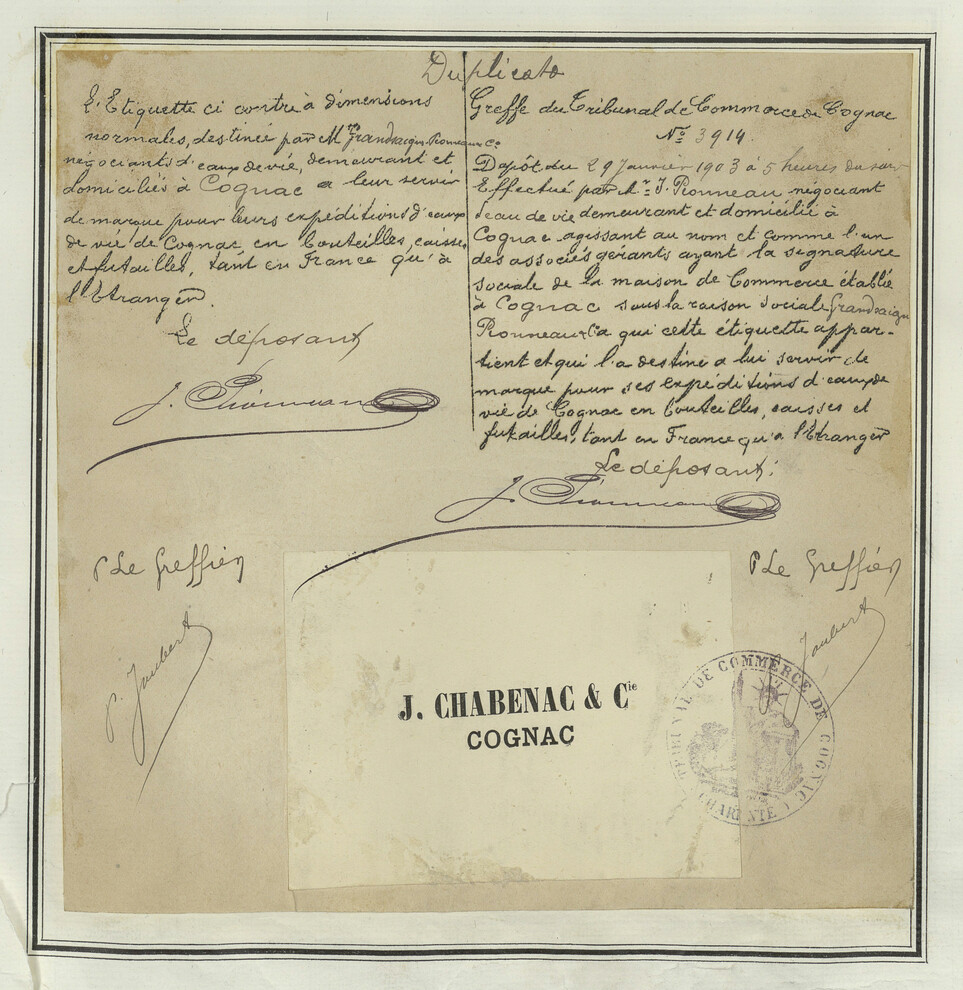 Duplicata
L'Etiquette ci contre à dimensions
normales, destinée par MM
négociants d'eaux de vie, demeurant et
domiciliés à Cognac a leur servir
de marque pour leurs expéditions d'eaux
de vie de Cognac en bouteilles, caisses
et futailles, tant en France qu'à
l'Etranger.
Le déposant
Greffe du Tribunal de Commerce de Cognac
N° 3914.
Dépôt du 29 Janvier 1903 à 5 heures du soir
Effectué par Mr J. Pionneau négociant
d'eau de vie demeurant et domicilié à
Cognac agissant au nom et comme l'un
des associés gérants ayant la signature
sociale de la maison de Commerce établie
à Cognac sous la raison sociale
Pionneau & Ca qui cette étiquette appar-
tient et qui l'a destiné a lui servir de
marque pour ses expéditions d'eaux de
vie de Cognac en bouteilles, caisses et
futailles, tant en France qu'a l'Etranger
Le déposant:
J. Pionneau
J. Pionneau
P Le Greffier
P Le Greffier
P. Joubert
Joubert
J. CHABENAC & Cie
COGNAC
TRIBUNAL DE COMMERCE DE COGNAC
CHARENTE